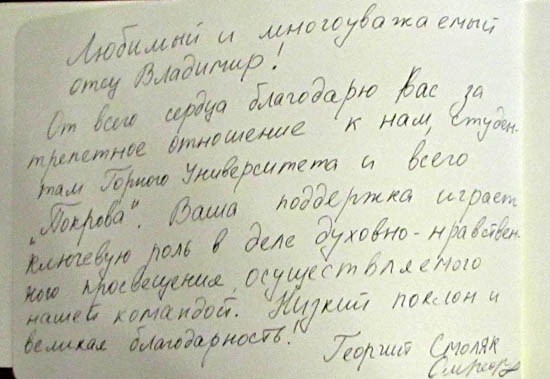 Любимый и многоуважаемый
отец Владимир!
От всего сердца благодарю Вас за
трепетное отношение к нам, студен-
там Горного Университета и всего
„Покрова“. Ваша поддержка играет
ключевую роль в деле духовно-нравствен-
ного просвещения, осуществляемого
нашей командой. Низкий поклон и
великая благодарность!
Георгий Смоляк